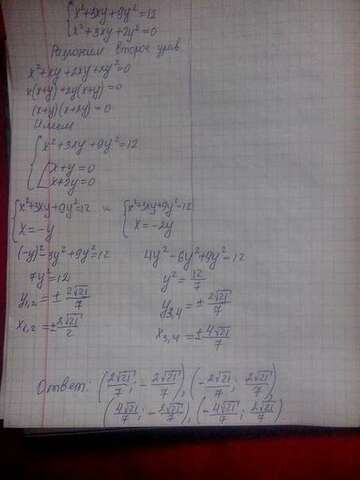 { x²+3xy+9y²=12
{ x²+3xy+2y²=0
Разложим второе урав
x²+xy+2xy+2y²=0
x(x+y)+2y(x+y)=0
(x+y)(x+2y)=0
Имеем
{ x²+3xy+9y²=12
[ x+y=0
x+2y=0
{ x²+3xy+9y²=12 и { x²+3xy+9y²=12
x=-y x=-2y
(-y)²-3y²+9y²=12 4y²-6y²+9y²=12
7y²=12 y²=12/7
y₁,₂=±2√21/7 y₃,₄=±2√21/7
x₁,₂=±2√21/2 x₃,₄=±4√21/7
Ответ: (2√21/7; -2√21/7), (-2√21/7; 2√21/7)
(4√21/7; -2√21/7), (-4√21/7; 2√21/7)